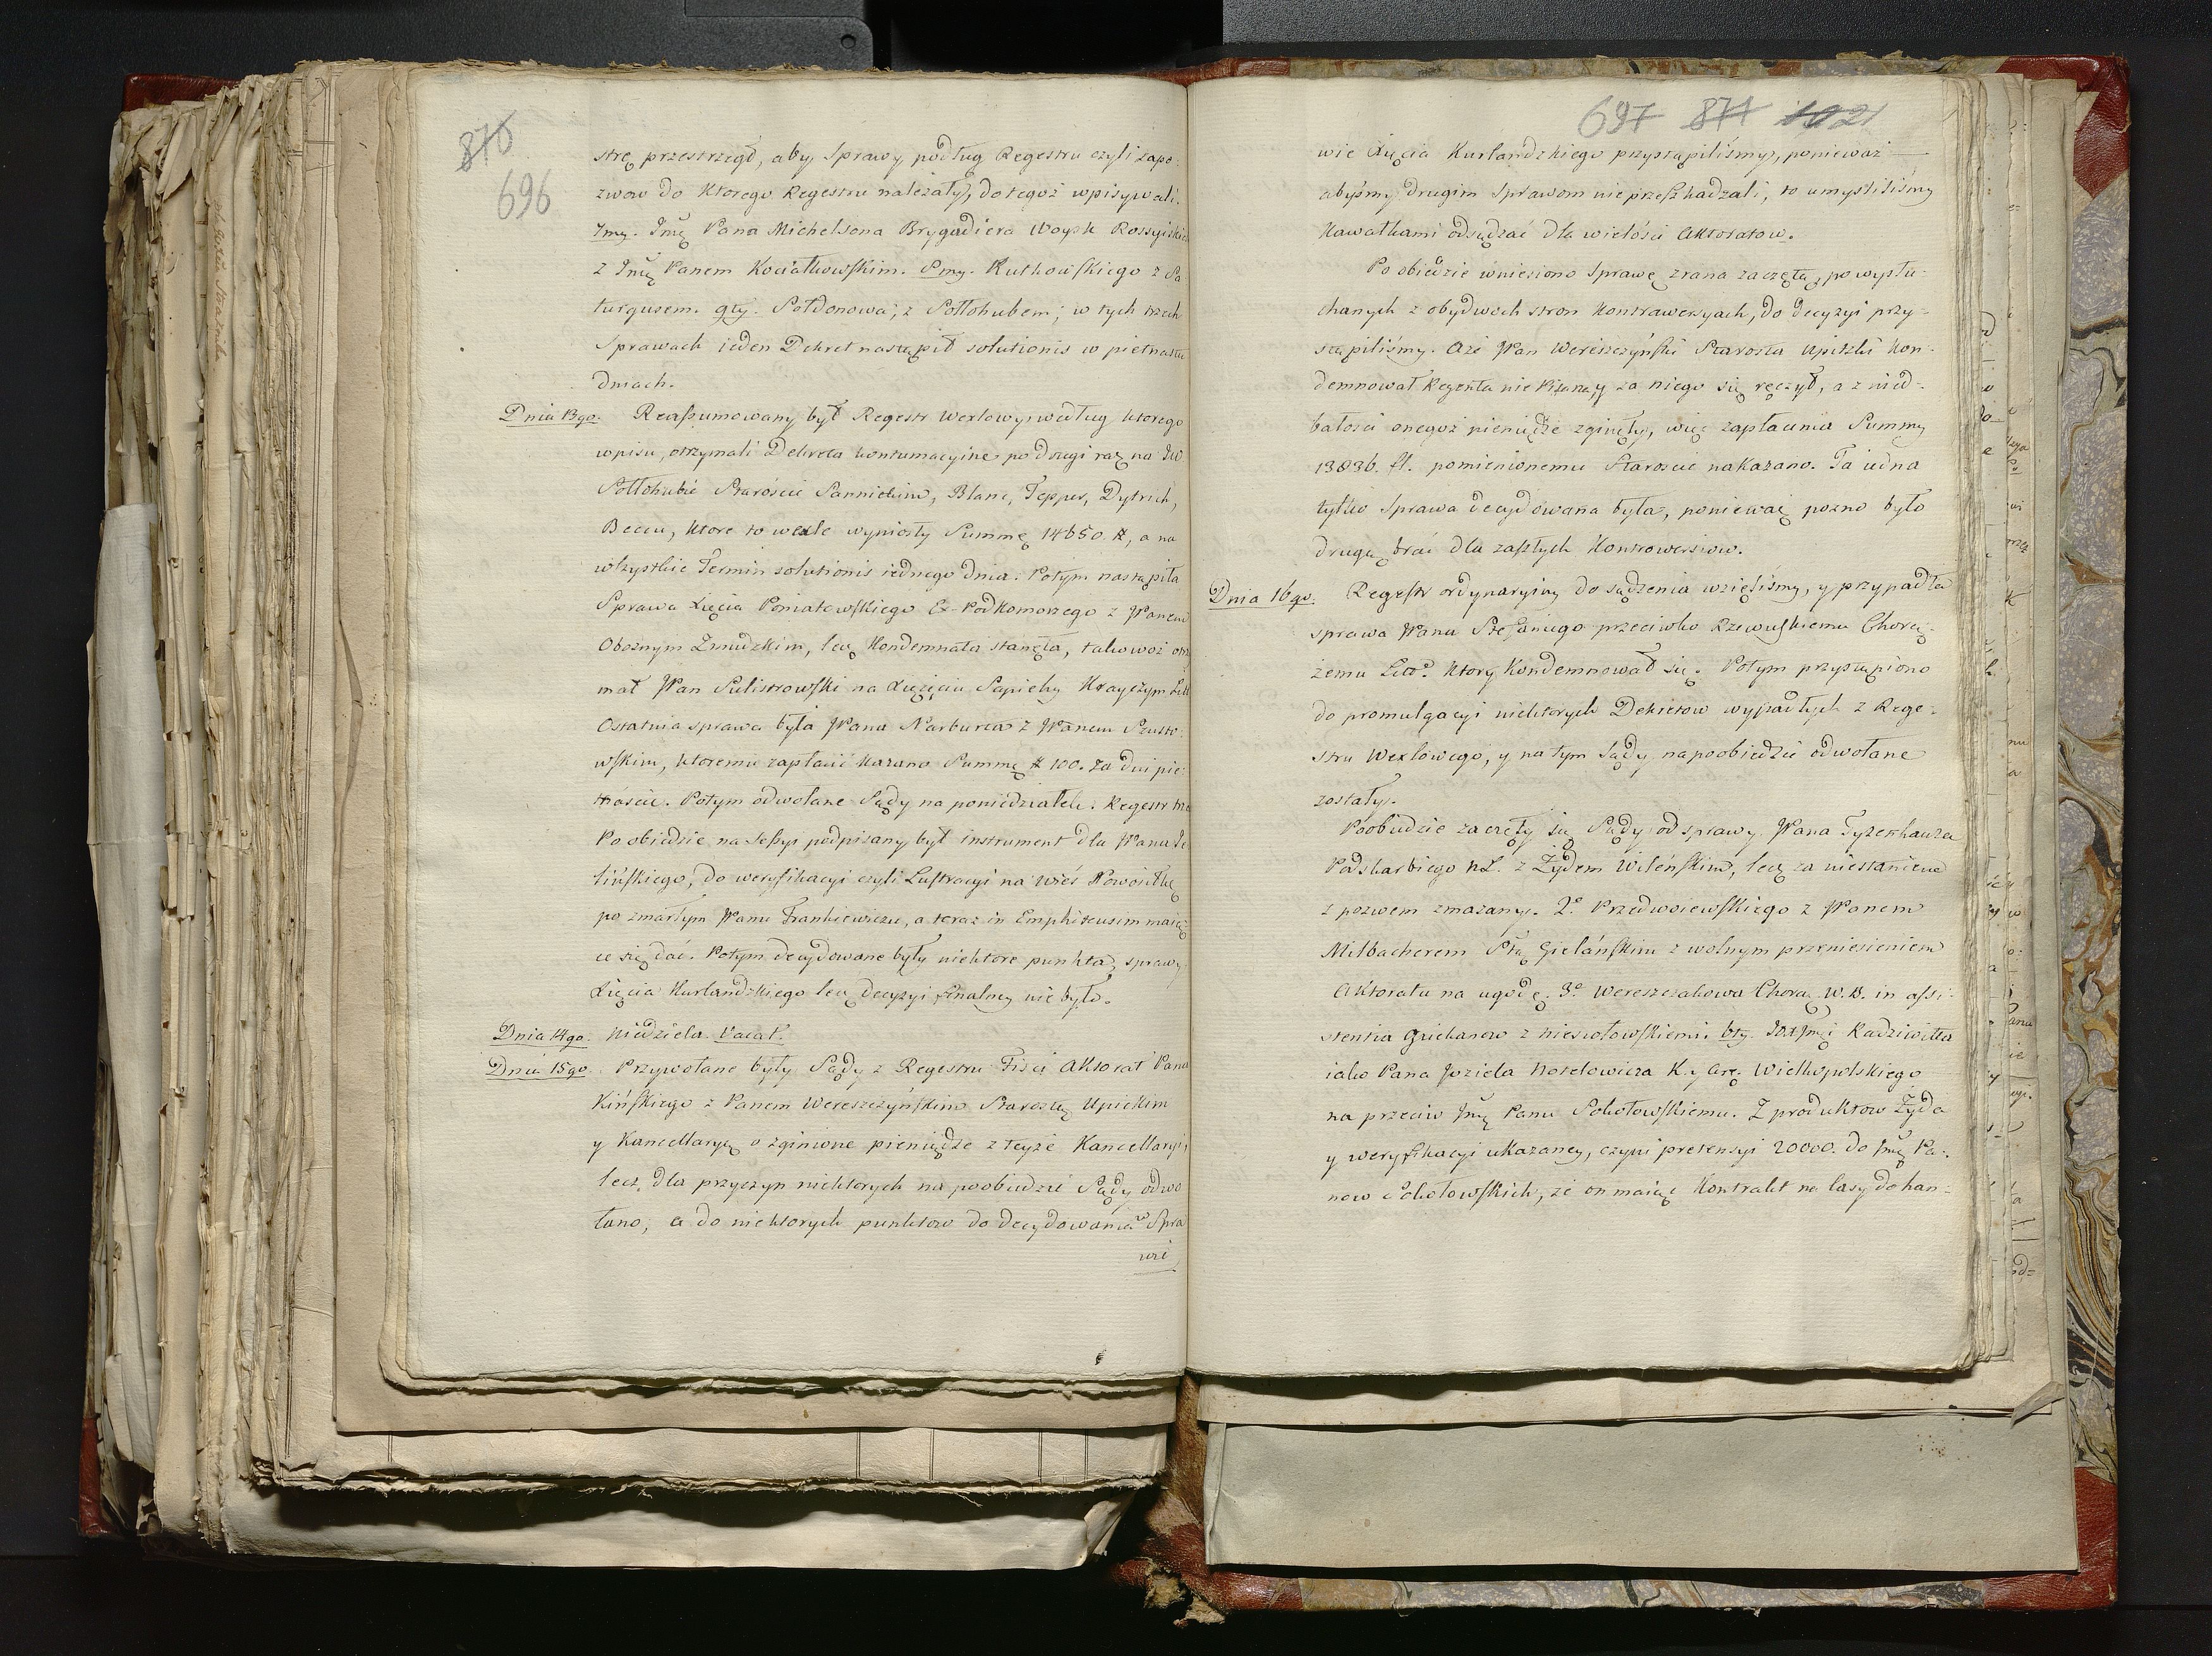 870
696
strę przestrzegł, aby sprawy podług Regestru czyli zapo=
zwow do ktorego Regestru należały, do tegoż wpisywali.
7my. Jmę Pana Michelsona Brygadiera Woysk Rossyiskich
z Jmę Panem Kociałkowskim. 8my. Rutkowskiego z Sa
turgusem. 9ty. Sołdonowa, z Sołłohubem; w tych trzech
Sprawach ieden Dekret nastąpił solutionis w pietnastu
dniach.
Dnia 13go. Reassumowany był Regestr Wexlowy, według ktorego
wpisu, otrzymali Dekreta kontumacyine po drugi raz na JW
Sołłohubie Staroście Sannickim, Blanc, Tepper, Dytrich,
Beccu, ktore to wexle wyniosły Summę 14650. #, a na
wszystkie Termin solutionis iednego dnia. Potym nastąpiła
Sprawa Xięcia Poniatowskiego Ex-Podkomorzego z JPanem
Oboznym Zmudzkim, lecz Kondemnata stanęła, takowoż otrzy
mał JPan Sulistrowski na Xiążęciu Sapiehy Krayczym Litt
Ostatnia sprawa była JPana Narbutta z JPanem Szusto=
wskim, ktoremu zapłacić kazano Summę # 100. za dni pie
tnaście. Potym odwołane Sądy na poniedziałek. Regestr
Po obiedzie na Sessyi podpisany był instrument dla JPana Je
lińskiego, do weryfikacyi czyli Lustracyi na Wieś Nowosiołkę
po zmarłym JPanu Frankiewiczu, a teraz in Emphiteusim maią
ce się dać. Potym decydowane były niektore punkta, sprawy
Xięcia Kurlandzkiego lecz decyzyi finalney nie było.
Dnia 14go. Niedziela. Vacat.
Dnia 15go. Przywołane były Sądy z Regestru Fisci Aktorat Pana
Kińskiego z Panem Wereszczyńskim Starostą Upickim
y Kancellaryą o zginione pieniądze z teyże Kancellaryi,
lecz dla przyczyn niektorych na poobiedzie Sądy odwo
łano, a do niektorych punktow do decydowania w Spra
wie
697 871 1021
wie Xięcia Kurlandzkiego przystąpiliśmy, ponieważ
abyśmy drugim sprawom nie przeszkadzali, to umyśliliśmy
kawałkami odsądzać dla wielości Aktoratow.
Po obiedzie wniesiono sprawę zrana zaczętą, po wysłu=
chanych z obydwoch stron kontrawersyach, do decyzyi przy=
stąpiliśmy. Aże JPan Wereszczyński Starosta Upitzki kon=
demnował Regenta nie za niego się ręczył, a z nied=
bałości onegoż pieniądze zginęły, więc zapłacenia Summy
13836. fl. pomienionemu Staroscie nakazano. Ta iedna
tylko sprawa decydowana była, ponieważ pozno było
drugą brać dla zaszłych kontrowersiow.
Dnia 16go. Regestr ordynaryiny do sądzenia wzięliśmy, y przypadła
sprawa JPana Stefaniego przeciwko Rzewuskiemu Chorą=
żemu Litto. ktory Kondemnował się. Potym przystąpiono
do promulgacyi niektorych Dekretow wypadłych z Rege=
stru Wexlowego, y na tym Sądy na poobiedzie odwołane
zostały.
Poobiedzie zaczęły się Sądy od sprawy JPana Tyzenhauza
Podskarbiego N.L. z Żydem Wileńskim, lecz za niestaniem
z pozwem zmazany. 2o. Przedwoiewskiego z JPanem
Milbacherem Sttą Gielańskim z wolnym przeniesieniem
Aktoratu na ugodę. 3o. Wereszczakowa Chorą. W.B. in assi=
stentia Griehanow z Niesiołowskiemi. 6ty. Radziwiłła
iako Pana Joziela Noselowicza K. y Wielkopolskiego
na przeciw Jmę Panu Sokołowskiemu. Z produktow Żyda
y weryfikacyi ukazaney, czyni pretensyi 20000. do Jmę Pa=
now Sokołowskich, że on maiąc kontrakt na lasy do han=